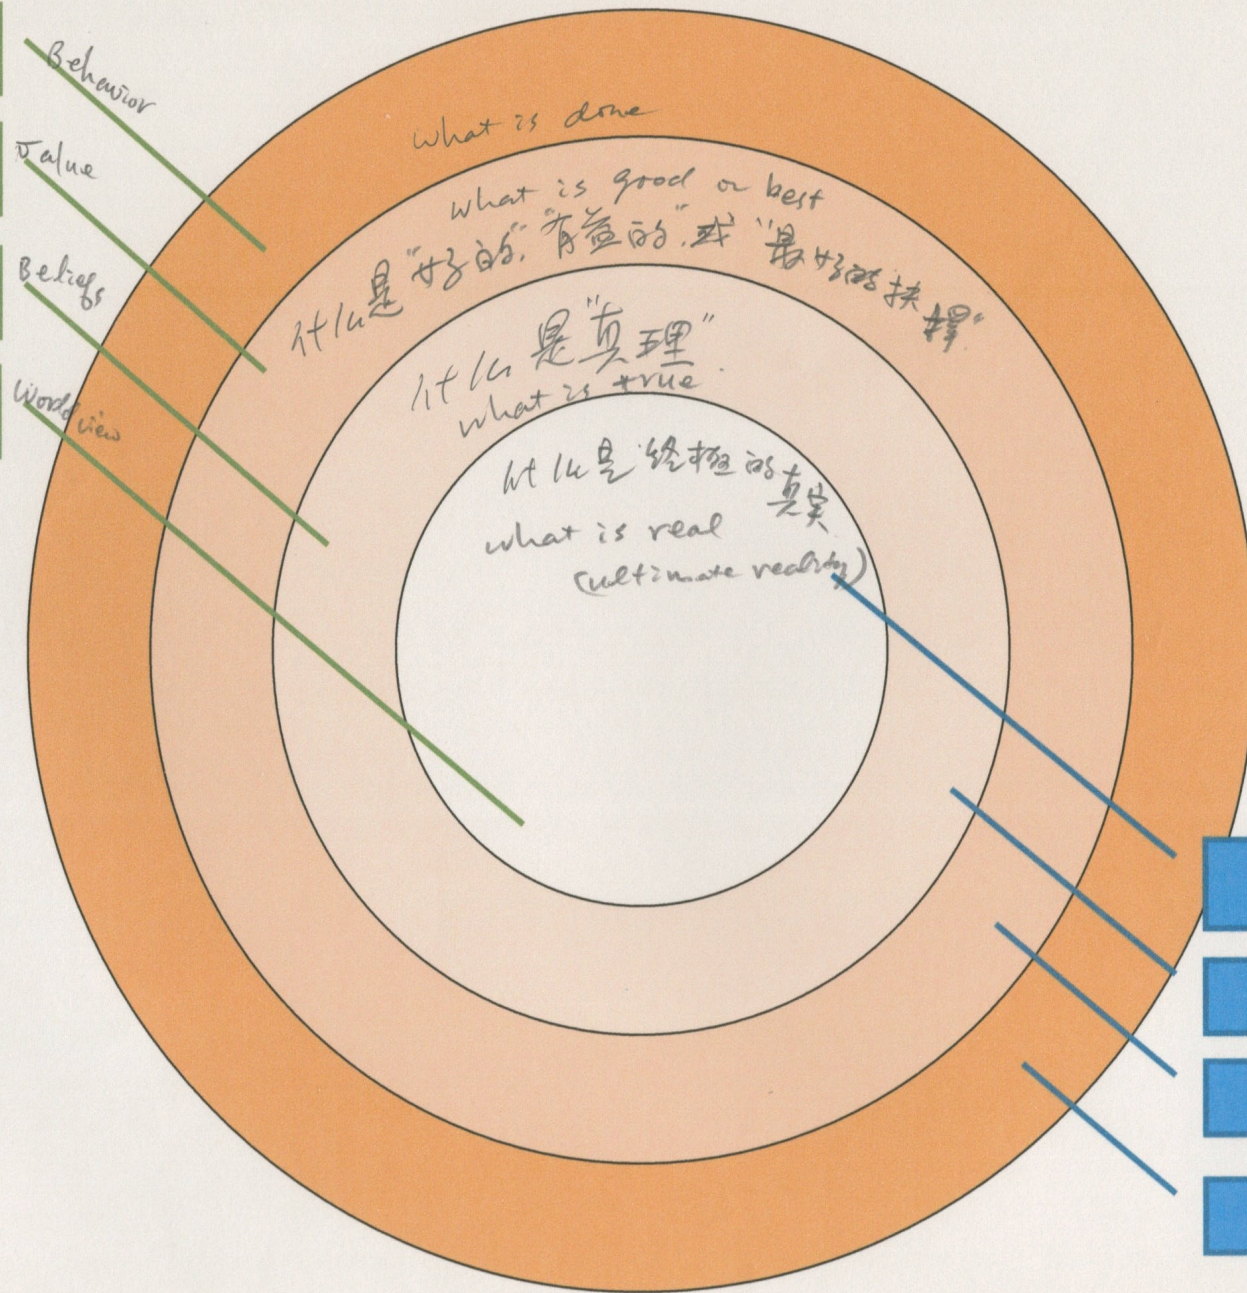 Behavior
Value
Beliefs
Worldview
what is done
what is good or best
什么是"好的","有益的",或"最好的抉擇"
什么是"真理"
what is true.
什么是终极的真实
what is real
(ultimate reality)